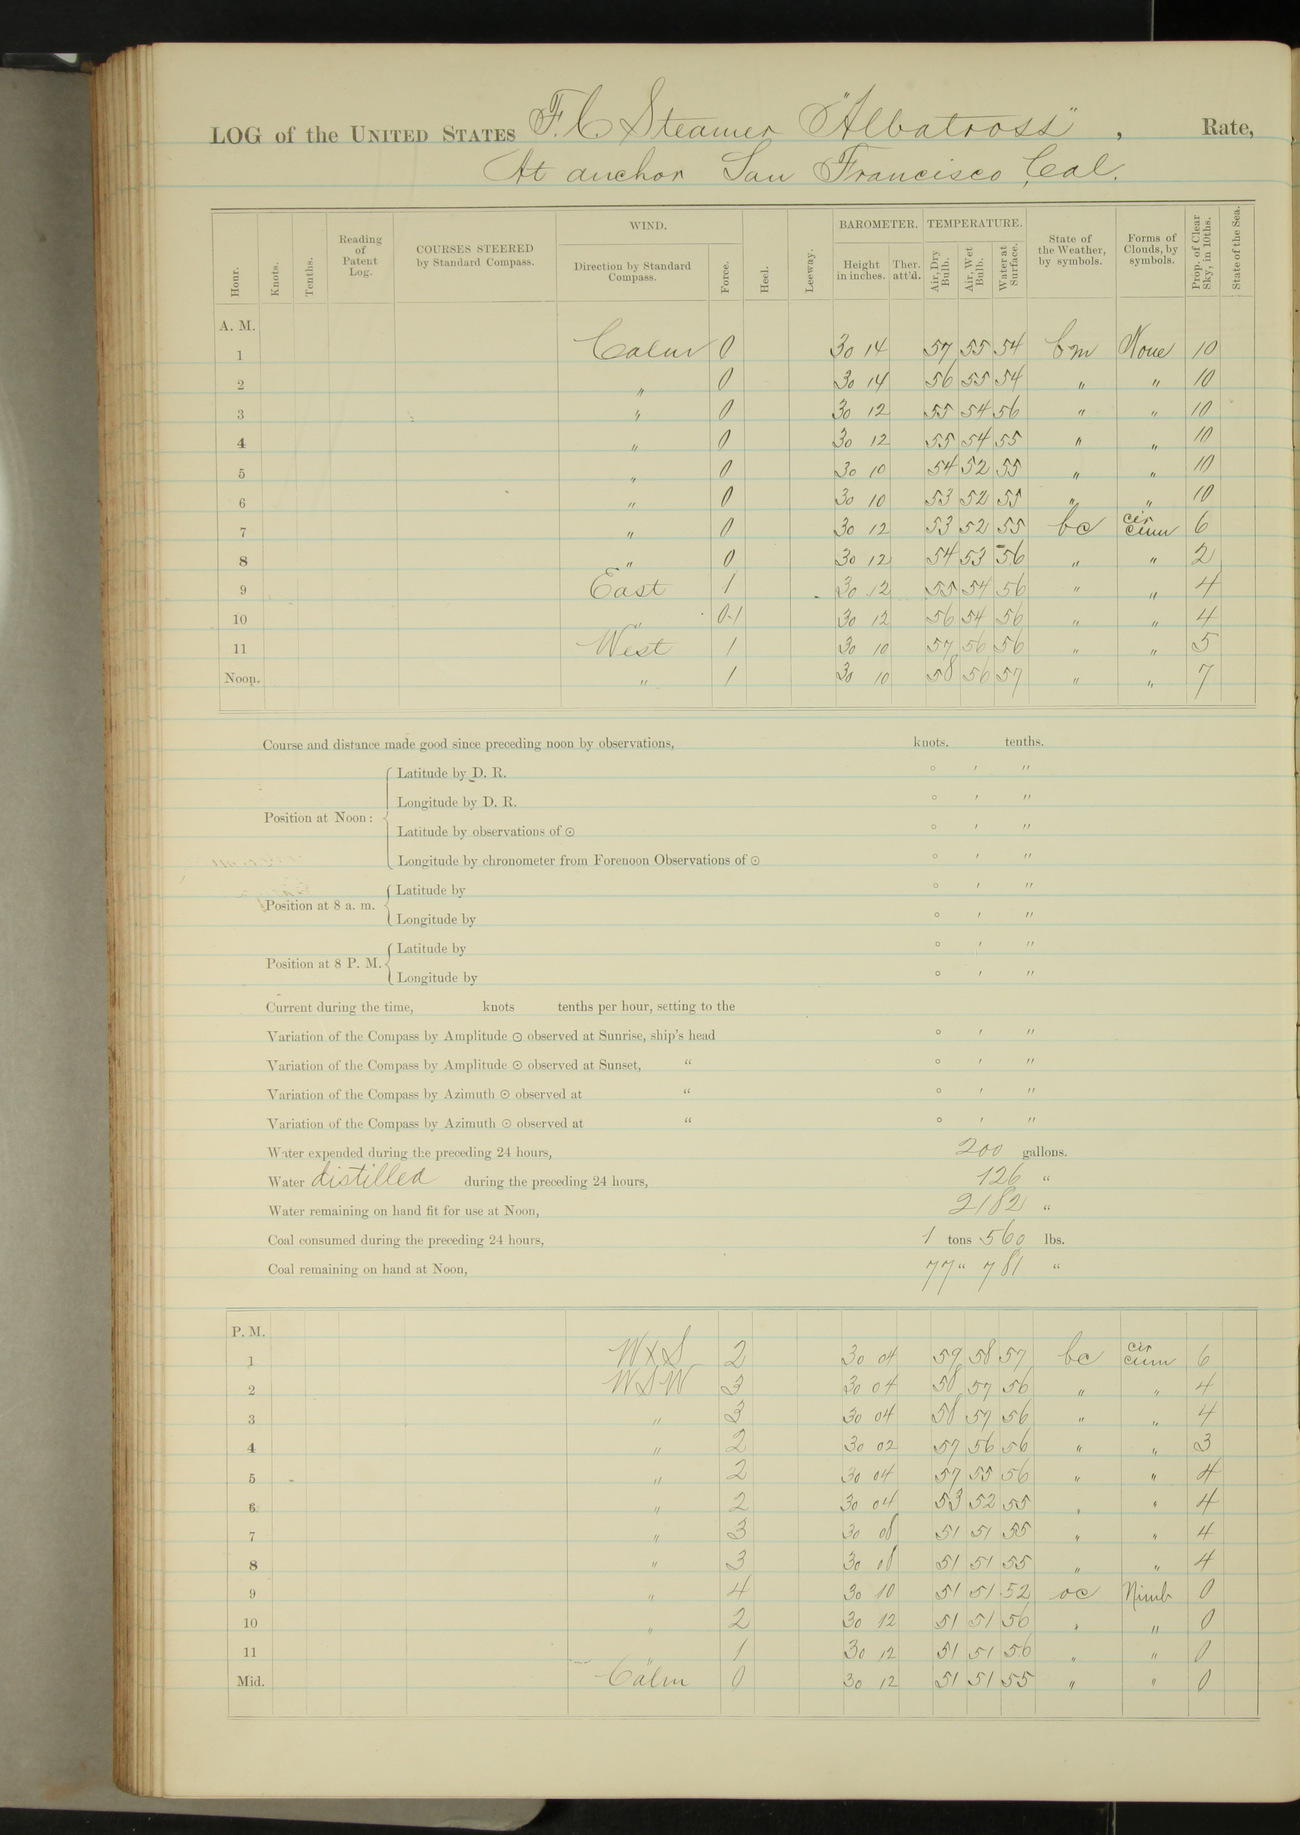 LOG of the UNITED STATES F. C. Steamer "Albatross", Rate,
At anchor San Francisco, Cal.
Hour. Knots. Tenths. Reading of Patent Log. COURSES STEERED by Standard Compass. WIND. Direction by Standard Compass. Force. Heel. Leeway. BAROMETER. Height in inches. Ther. att'd. TEMPERATURE. Air, Dry Bulb. Air, Wet Bulb. Water at Surface. State of the Weather, by symbols. Forms of Clouds, by symbols. Prop. of Clear Sky, in 10ths. State of the Sea.
A. M.
1 Calm 0 30 14 57 55 54 bm None 10
2 " 0 30 14 56 55 54 " " 10
3 " 0 30 12 55 54 56 " " 10
4 " 0 30 12 55 54 55 " " 10
5 " 0 30 10 54 52 55 " " 10
6 " 0 30 10 53 52 55 " " 10
7 " 0 30 12 53 52 55 bc cir cum 6
8 " 0 30 12 54 53 56 " " 2
9 East 1 30 12 55 54 56 " " 4
10 " 0-1 30 12 56 54 56 " " 4
11 West 1 30 10 57 56 56 " " 5
Noon. " 1 30 10 58 56 57 " " 7
Course and distance made good since preceding noon by observations, knots. tenths.
Position at Noon: Latitude by D. R. ° ′ ″
Longitude by D. R. ° ′ ″
Latitude by observations of ⊙ ° ′ ″
Longitude by chronometer from Forenoon Observations of ⊙ ° ′ ″
Position at 8 a. m. Latitude by ° ′ ″
Longitude by ° ′ ″
Position at 8 P. M. Latitude by ° ′ ″
Longitude by ° ′ ″
Current during the time, knots tenths per hour, setting to the
Variation of the Compass by Amplitude ⊙ observed at Sunrise, ship's head ° ′ ″
Variation of the Compass by Amplitude ⊙ observed at Sunset, " ° ′ ″
Variation of the Compass by Azimuth ⊙ observed at " ° ′ ″
Variation of the Compass by Azimuth ⊙ observed at " ° ′ ″
Water expended during the preceding 24 hours, 200 gallons.
Water distilled during the preceding 24 hours, 126 "
Water remaining on hand fit for use at Noon, 2182 "
Coal consumed during the preceding 24 hours, 1 tons 560 lbs.
Coal remaining on hand at Noon, 77 " 781 "
P. M.
1 WxS 2 30 04 59 58 57 bc cir cum 6
2 WSW 3 30 04 58 57 56 " " 4
3 " 3 30 04 58 57 56 " " 4
4 " 2 30 02 57 56 56 " " 3
5 " 2 30 04 57 55 56 " " 4
6 " 2 30 04 53 52 55 " " 4
7 " 3 30 08 51 51 55 " " 4
8 " 3 30 08 51 51 55 " " 4
9 " 4 30 10 51 51 52 oc Nimb 0
10 " 2 30 12 51 51 56 " " 0
11 " 1 30 12 51 51 56 " " 0
Mid. Calm 0 30 12 51 51 55 " " 0